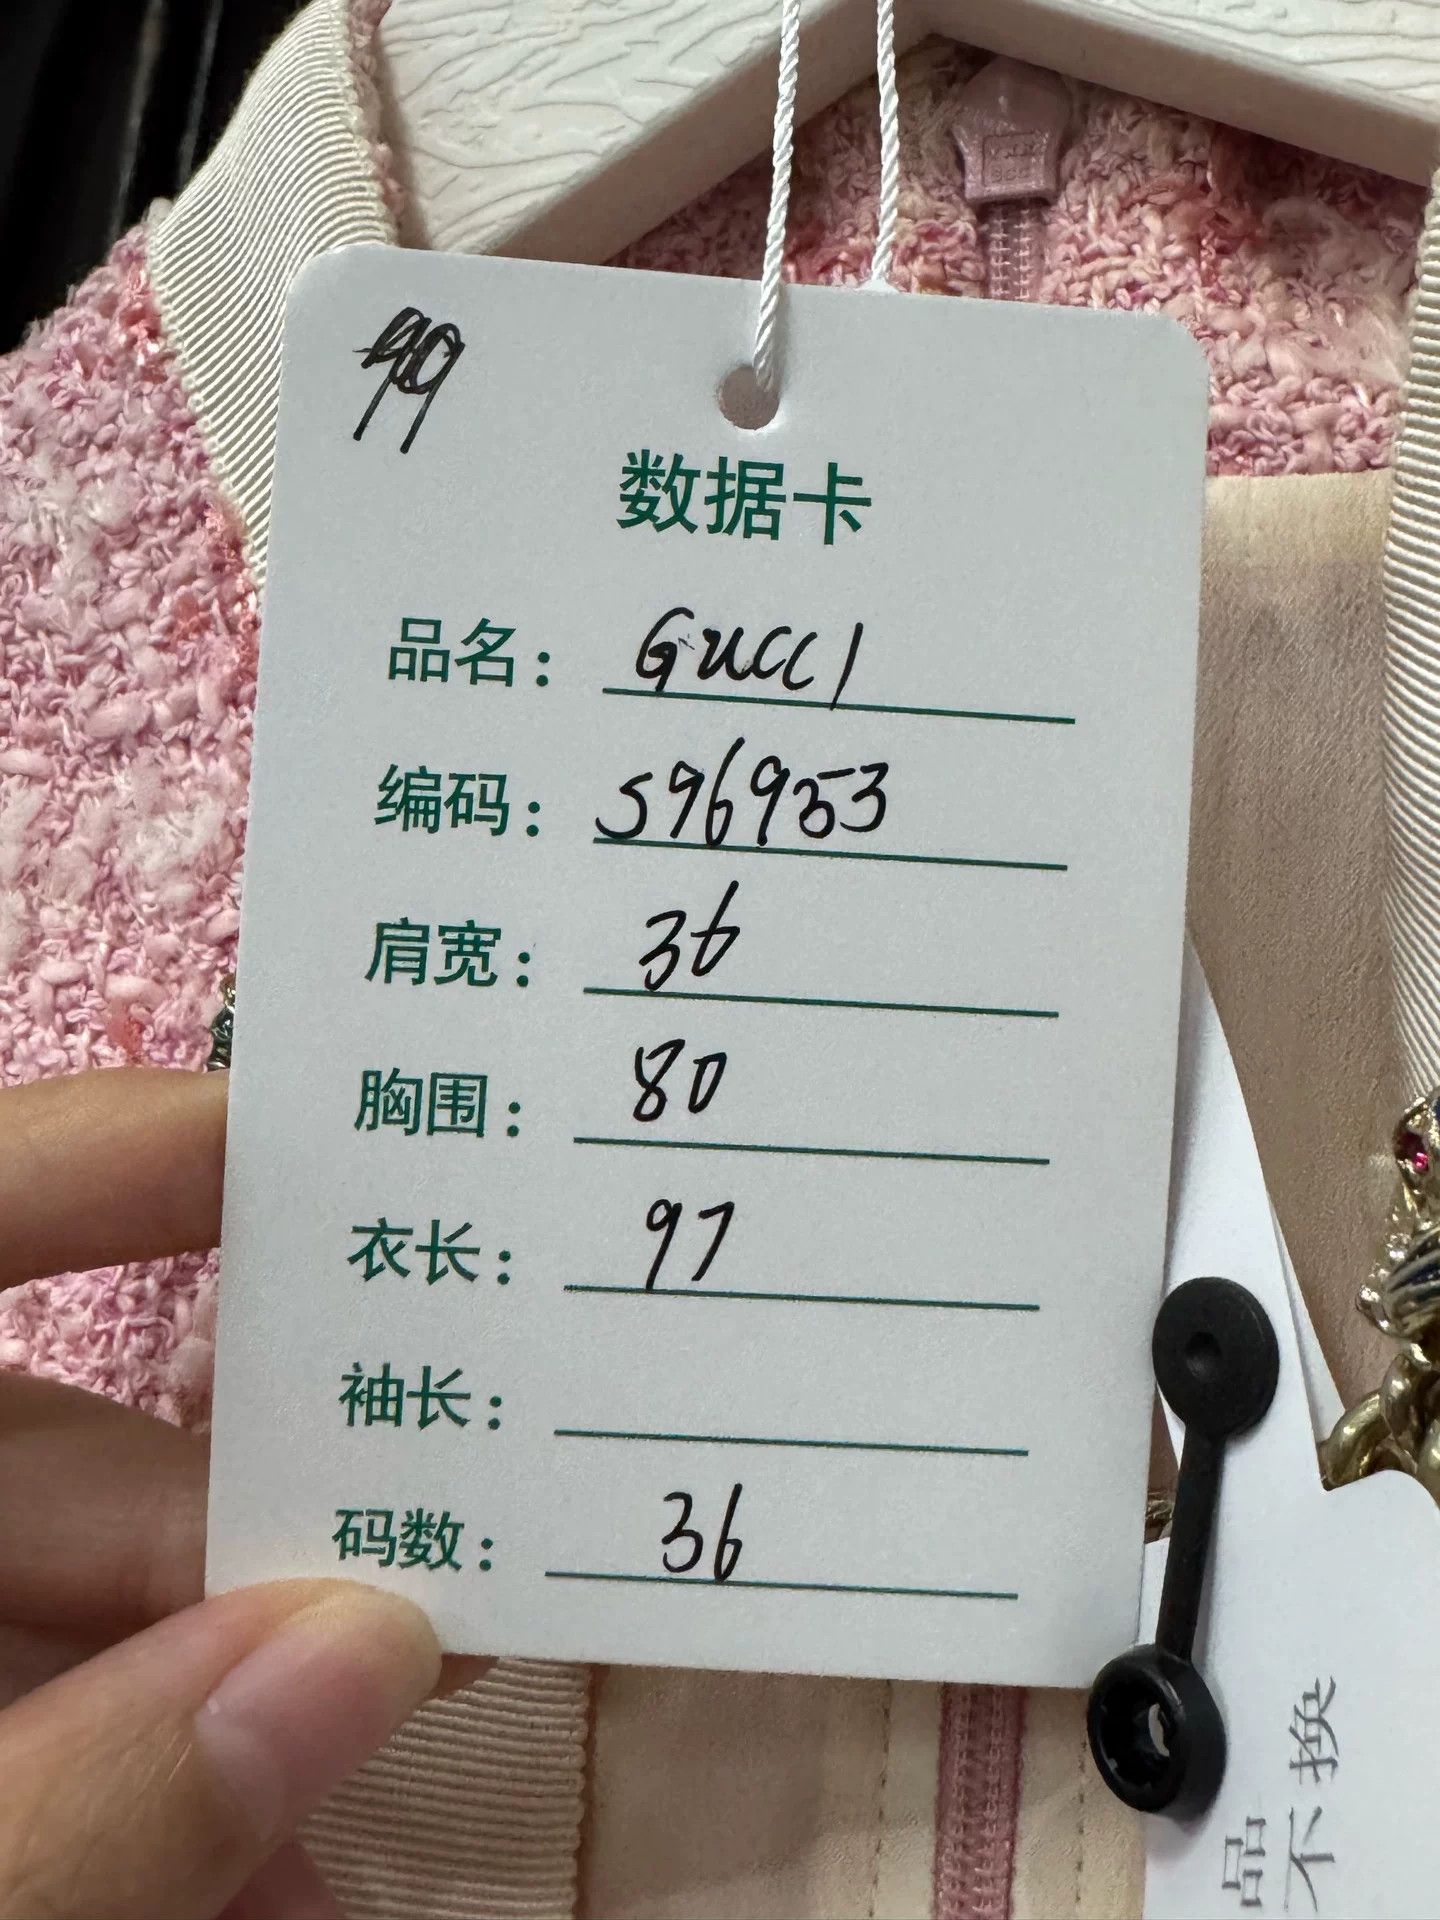 99
数据卡
品名： GUCCI
编码： 596953
肩宽： 36
胸围： 80
衣长： 97
袖长：
码数： 36
品
不换